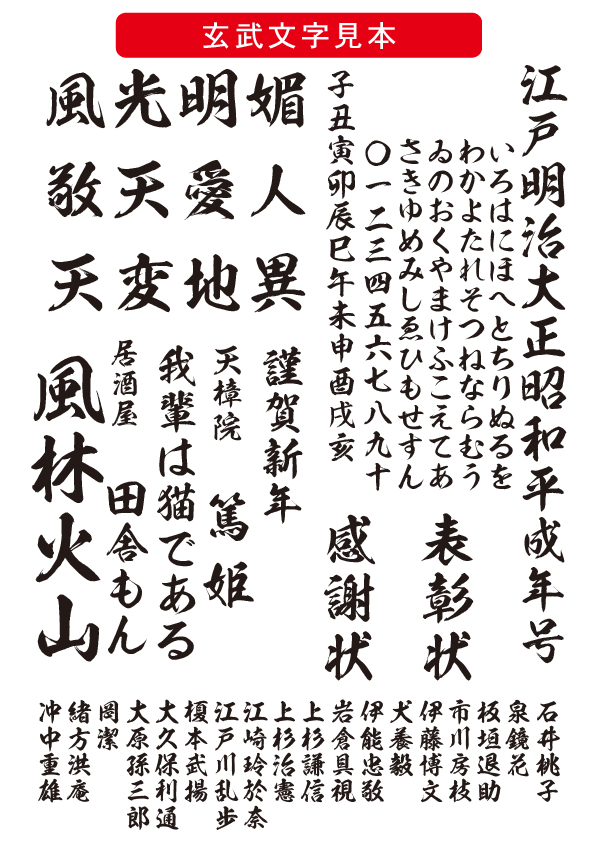 玄武文字見本
江戸明治大正昭和平成年号
いろはにほへとちりぬるを
わかよたれそつねならむう
ゐのおくやまけふこえてあ
さきゆめみしゑひもせすん
〇一二三四五六七八九十
子丑寅卯辰巳午未申酉戌亥
表彰状
感謝状
媚人異
明愛地
光天変
風敬天
謹賀新年
天樟院
篤姫
我輩は猫である
居酒屋
田舎もん
風林火山
石井桃子
泉鏡花
板垣退助
市川房枝
伊藤博文
犬養毅
伊能忠敬
岩倉具視
上杉謙信
上杉治憲
江崎玲於奈
江戸川乱歩
榎本武揚
大久保利通
大原孫三郎
岡潔
緒方洪庵
沖中重雄